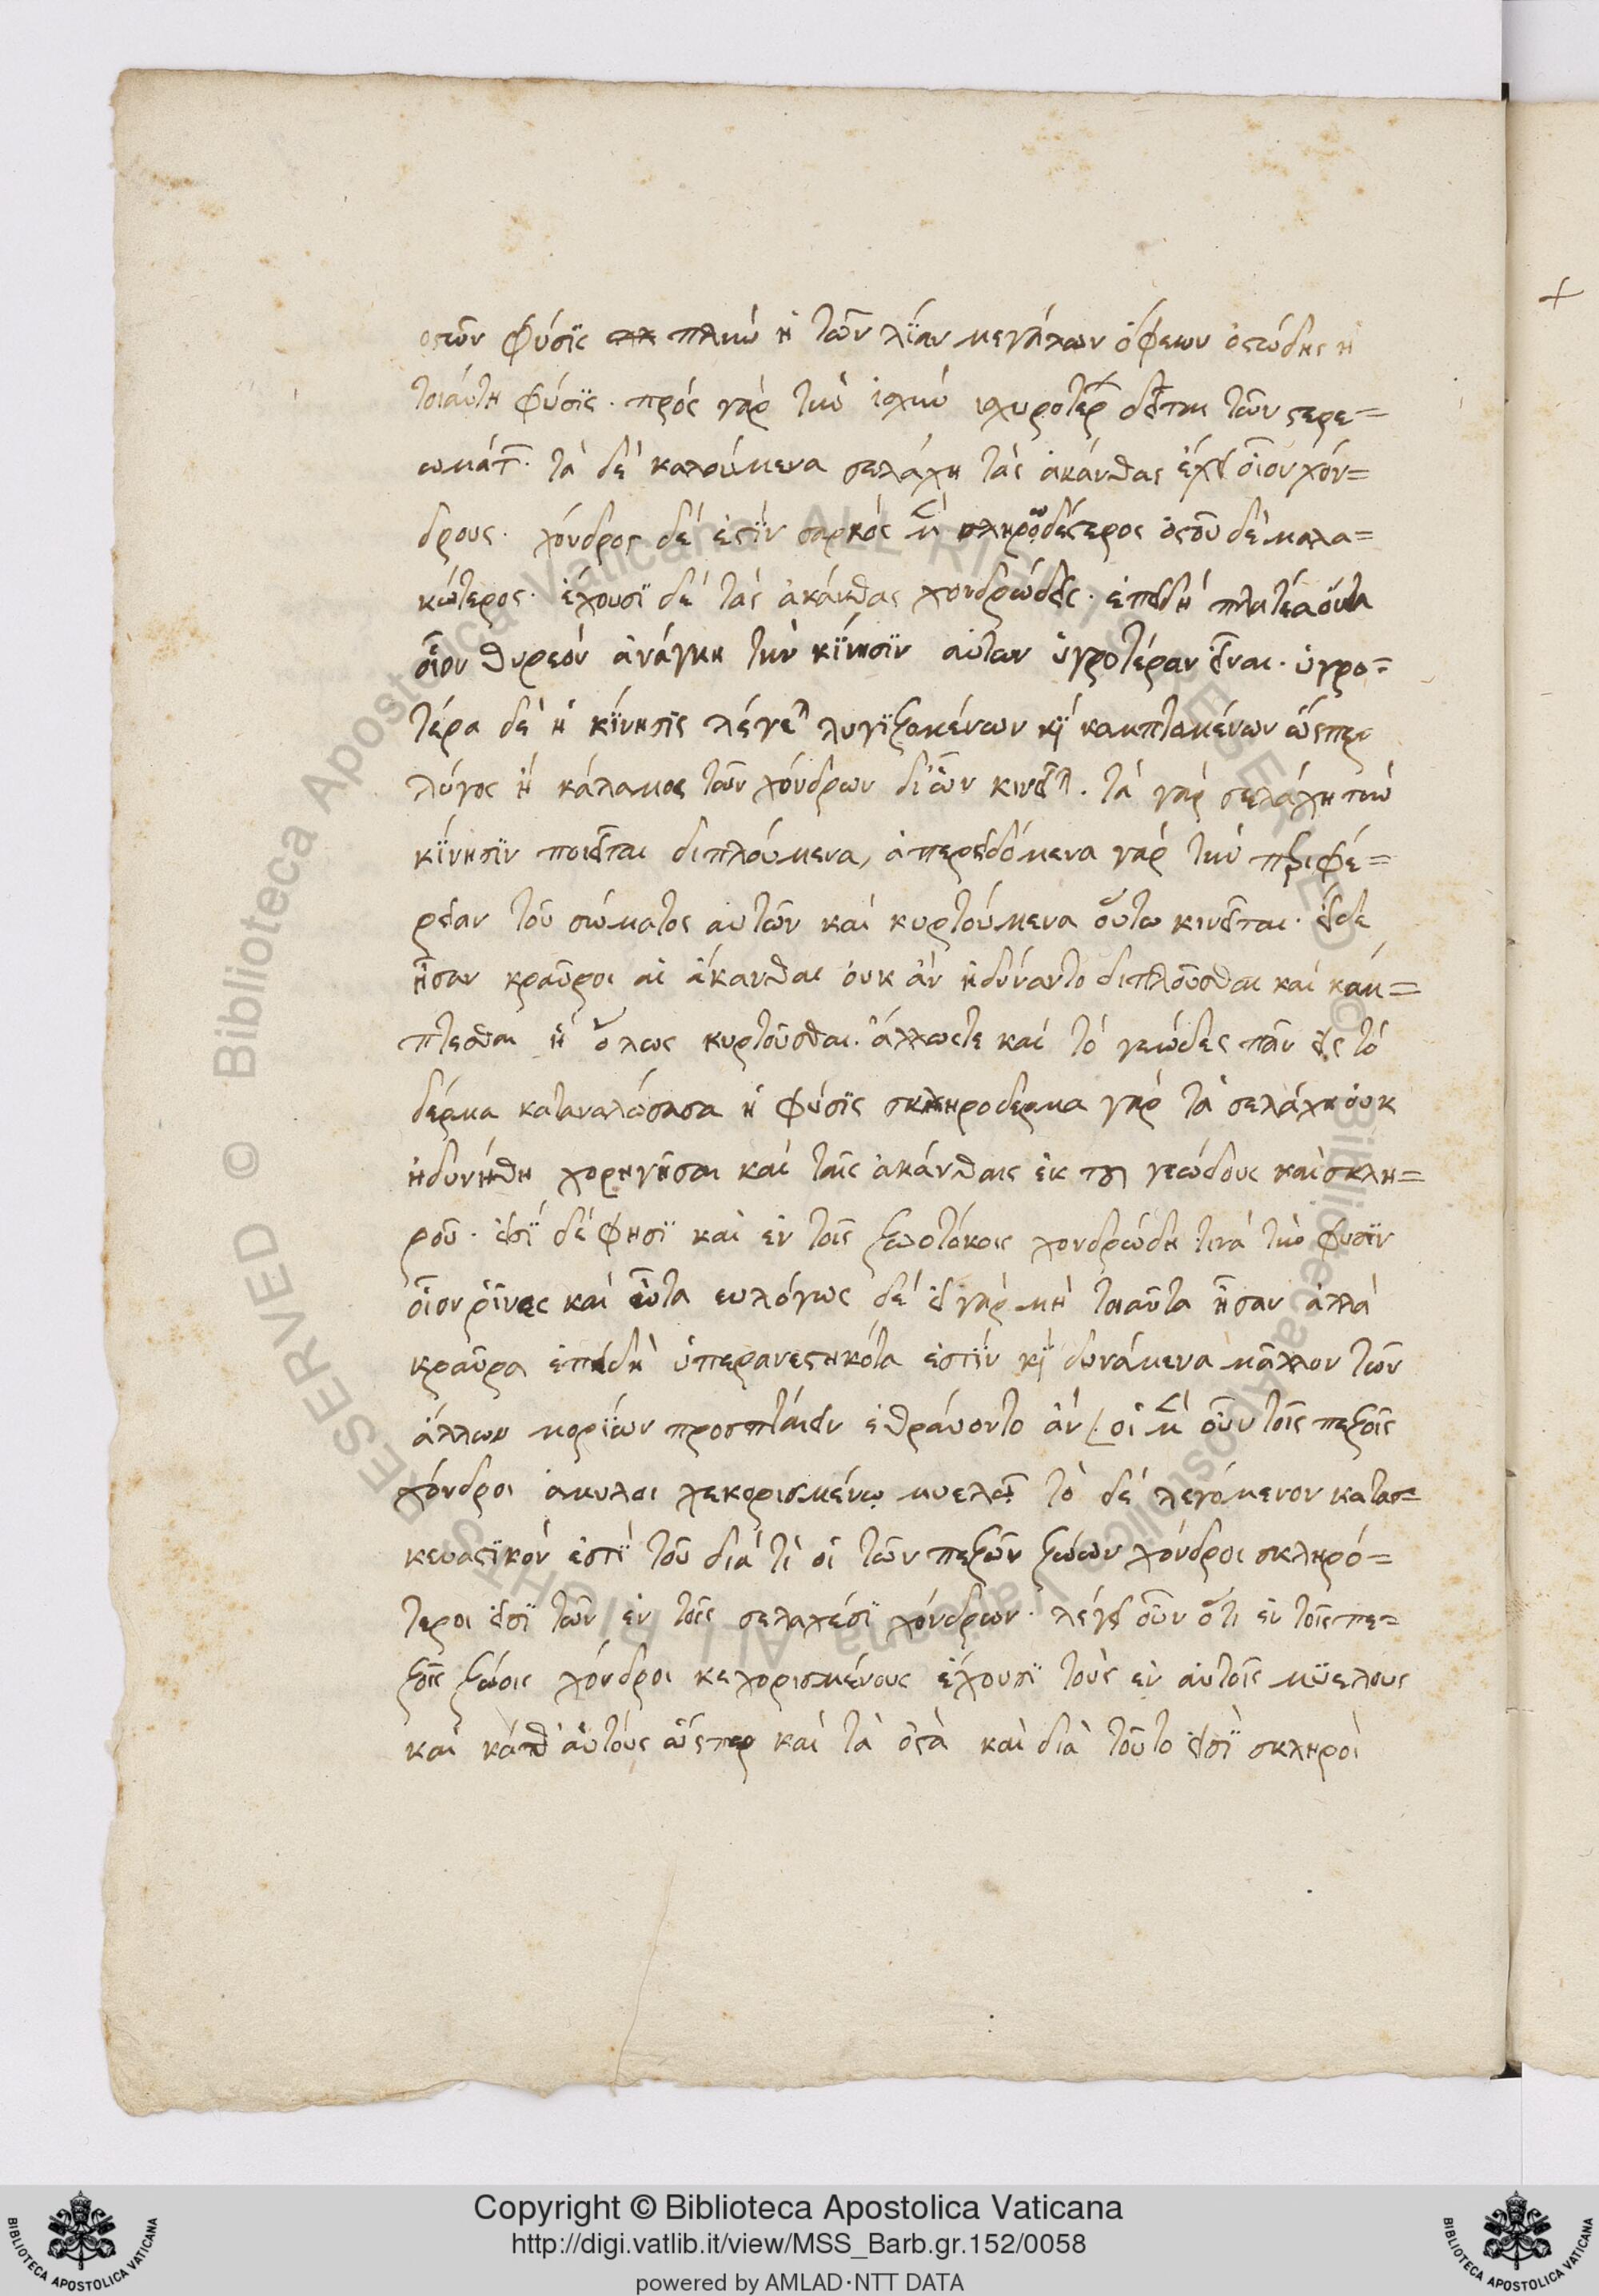 οστῶν φύσϊς πλὴν ἡ τῶν λΐαν μεγάλων ὄφεων ὀστώδης ἡ
τοιάυτη φύσϊς. πρὸς γὰρ τὴν ἰσχὺν ἰσχυροτέρ δεῖται τῶν στερε=
ωμάτ. τὰ δὲ καλούμενα σελάχη τὰς ἀκάνθας ἔχει οἷον χόν=
δρους. χόνδρος δέ ἐστϊν σαρκὸς μὲν δέστερος ὀστοῦ δὲ μαλα=
κώτερος. ἔχουσϊ δὲ τὰς ἀκάνθας χονδρώδεις. ἐπειδὴ πλατέα όντα
οἷον θυρεὸν ἀνάγκη τὴν κΐνησϊν αὐτων ὑγροτέραν εἶναι. ὑγρο=
τέρα δὲ ἡ κΐνησϊς λέγε λυγϊζομένων κϊ καμπτομένων ὥσπερ
λύγος ἢ κάλαμος τῶν χόνδρων δι ὧν κινεῖτ. τὰ γὰρ σελάχη τὴν
κΐνησϊν ποιεῖται διπλούμενα, ἀπερειδόμενα γὰρ τὴν περιφέ=
ρειαν τοῦ σώματος αυτῶν καὶ κυρτούμενα οὕτω κινεῖται. εἰ δε
ἦσαν κραῦροι αἱ ἄκανθαι ὀυκ ἂν ἠδύναντο διπλοῦσθαι καὶ κάμ=
πτεσθαι ἢ ὅλως κυρτοῦσθαι. ἄλλωστε καὶ τὸ γεῶδες πᾶν εἰς τὸ
δέρμα καταναλώσασα ἡ φύσϊς σκληροδερμα γὰρ τὰ σελάχη ὀυκ
ἠδυνήθη χορηγῆσαι καὶ ταῖς ἀκάνθαις ἐκ του γεώδους καὶ σκλη=
ροῦ. ἐισϊ δέ φησϊ καὶ ἐν τοῖς ζωοτόκοις χονδρώδη τινὰ τὴν φυσϊν
οἷον ῥῖνες καὶ ὦτα ευλόγως δέ εἰ γὰρ μὴ τοιαῦτα ἦσαν ἀλλὰ
κραῦρα ἐπειδὴ ὑπερανεστηκότα ἐστϊν κϊ δυνάμενα μᾶλλον τῶν
ἄλλων μορΐων προσπταίειν ἐθράυοντο ἄν. οἱ μὲν οὖν τοῖς πεζοῖς
χόνδροι ἀμυλοι χεκορισμένῳ μυελῷ τὸ δὲ λεγόμενον κατασ=
κευαστϊκόν ἐστϊ τοῦ διά τὶ οἱ τῶν πεζῶν ζώων χόνδροι σκληρό=
τεροι εἰσϊ τῶν ἐν τοῖς σελαχέσϊ χόνδρων. λέγει οὖν ὅτι ἐν τοῖς πε=
ζοῖς ζώοις χόνδροι κεχορισμένους ἔχουσϊ τοὺς ἐν αὐτοῖς μϋελους
καὶ κάθ ἁυτοὺς ὥσπερ καὶ τὰ ὀστὰ καὶ διὰ τοῦτο εἰσϊ σκληροὶ
Copyright © Biblioteca Apostolica Vaticana
http://digi.vatlib.it/view/MSS_Barb.gr.152/0058
powered by AMLAD·NTT DATA